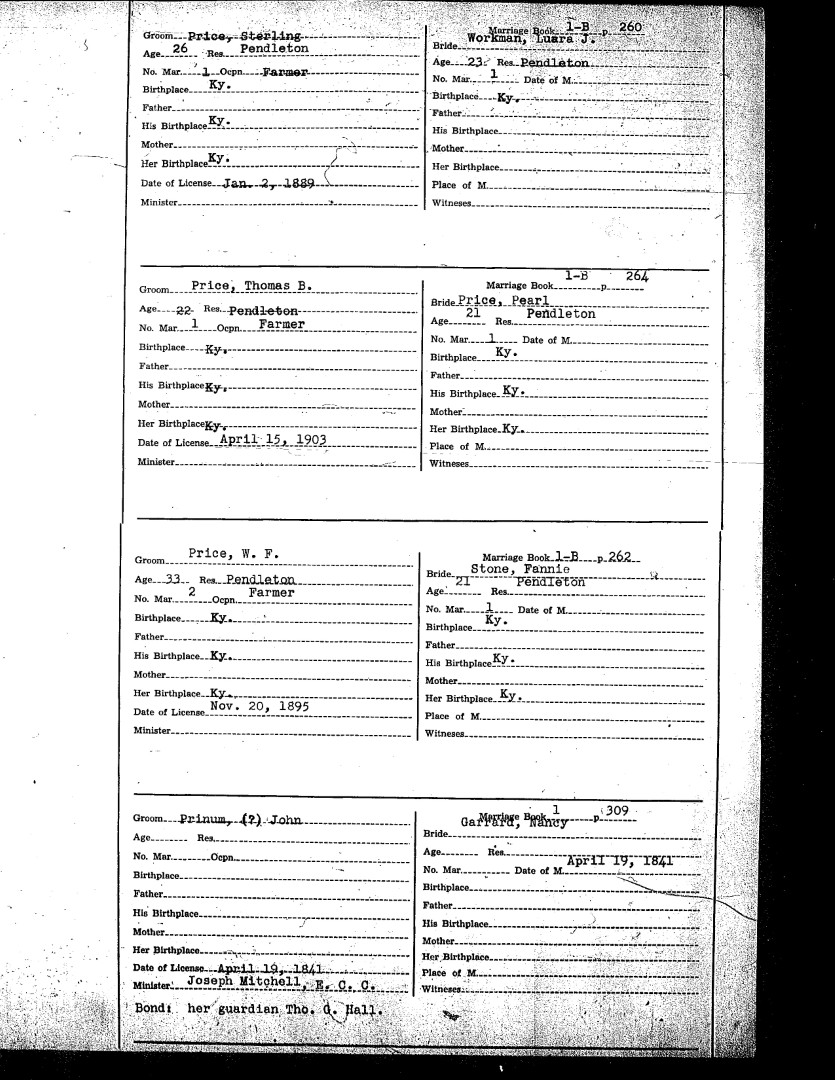 Groom Price, Sterling
Age 26 Res. Pendleton
No. Mar. 1 Ocpn. Farmer
Birthplace Ky.
Father
His Birthplace Ky.
Mother
Her Birthplace Ky.
Date of License Jan. 2, 1889
Minister
Marriage Book 1-B p. 260
Bride Workman, Luara J.
Age 23 Res. Pendleton
No. Mar. 1 Date of M.
Birthplace Ky.
Father
His Birthplace
Mother
Her Birthplace
Place of M.
Witneses
Groom Price, Thomas B.
Age 22 Res. Pendleton
No. Mar. 1 Ocpn. Farmer
Birthplace Ky.
Father
His Birthplace Ky.
Mother
Her Birthplace Ky.
Date of License April 15, 1903
Minister
Marriage Book 1-B p. 264
Bride Price, Pearl
Age 21 Res. Pendleton
No. Mar. 1 Date of M.
Birthplace Ky.
Father
His Birthplace Ky.
Mother
Her Birthplace Ky.
Place of M.
Witneses
Groom Price, W. F.
Age 33 Res. Pendleton
No. Mar. 2 Ocpn. Farmer
Birthplace Ky.
Father
His Birthplace Ky.
Mother
Her Birthplace Ky.
Date of License Nov. 20, 1895
Minister
Marriage Book 1-B p. 262
Bride Stone, Fannie
Age 21 Res. Pendleton
No. Mar. 1 Date of M.
Birthplace Ky.
Father
His Birthplace Ky.
Mother
Her Birthplace Ky.
Place of M.
Witneses
Groom Prinum, (?) John
Age Res.
No. Mar. Ocpn.
Birthplace
Father
His Birthplace
Mother
Her Birthplace
Date of License April 19, 1841
Minister Joseph Mitchell, E. C. C.
Bond: her guardian Tho. d. Hall.
Marriage Book 1 p. 309
Bride Garrard, Nancy
Age Res.
No. Mar. Date of M. April 19, 1841
Birthplace
Father
His Birthplace
Mother
Her Birthplace
Place of M.
Witneses